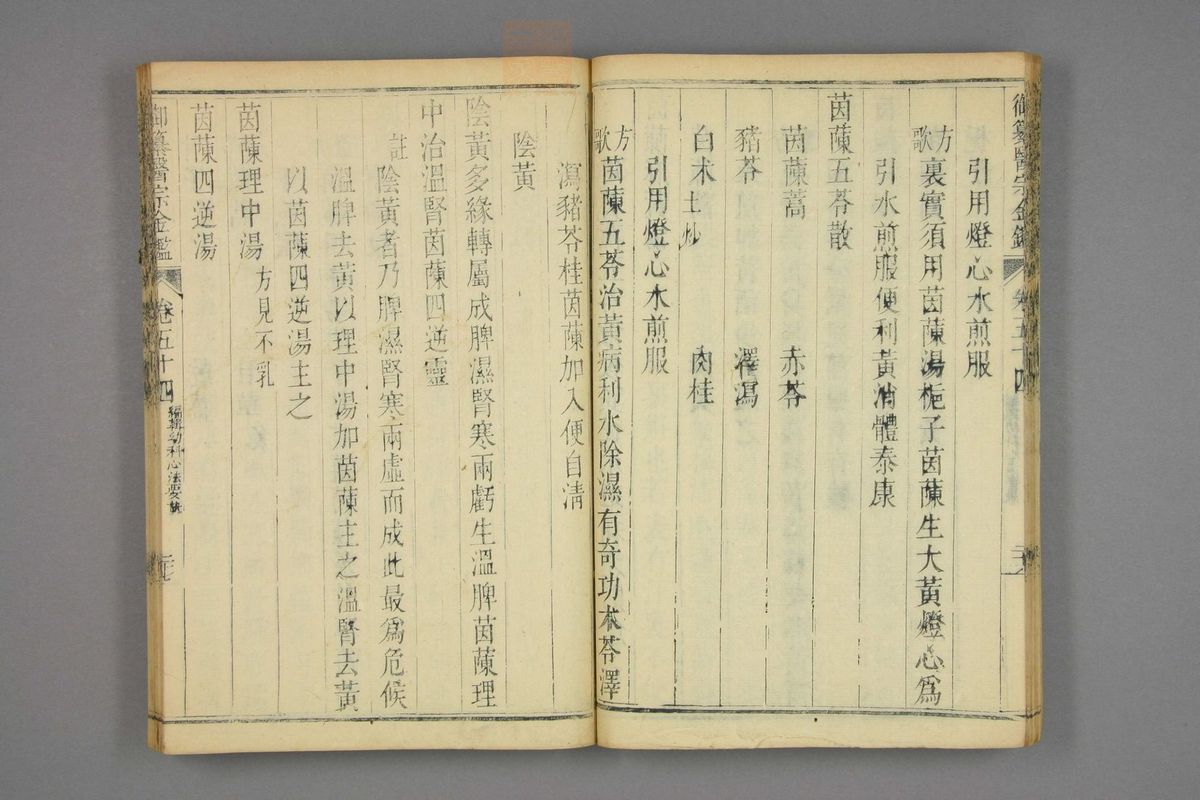 御纂醫宗金鑑 卷五十四
引用燈心水煎服
方歌 裏實須用茵蔯湯梔子茵蔯生大黃燈心爲
引水煎服便利黃消體泰康
茵蔯五苓散
茵蔯蒿 赤苓
豬苓 澤瀉
白朮土炒 肉桂
引用燈心水煎服
方歌 茵蔯五苓治黃病利水除濕有奇功朮苓澤
瀉豬苓桂茵蔯加入便自清
陰黃
陰黃多緣轉屬成脾濕腎寒兩虧生溫脾茵蔯理
中治溫腎茵蔯四逆靈
註 陰黃者乃脾濕腎寒兩虛而成此最爲危候
溫脾去黃以理中湯加茵蔯主之溫腎去黃
以茵蔯四逆湯主之
茵蔯理中湯 方見不乳
茵蔯四逆湯
御纂醫宗金鑑 卷五十四 編輯幼科心法要訣